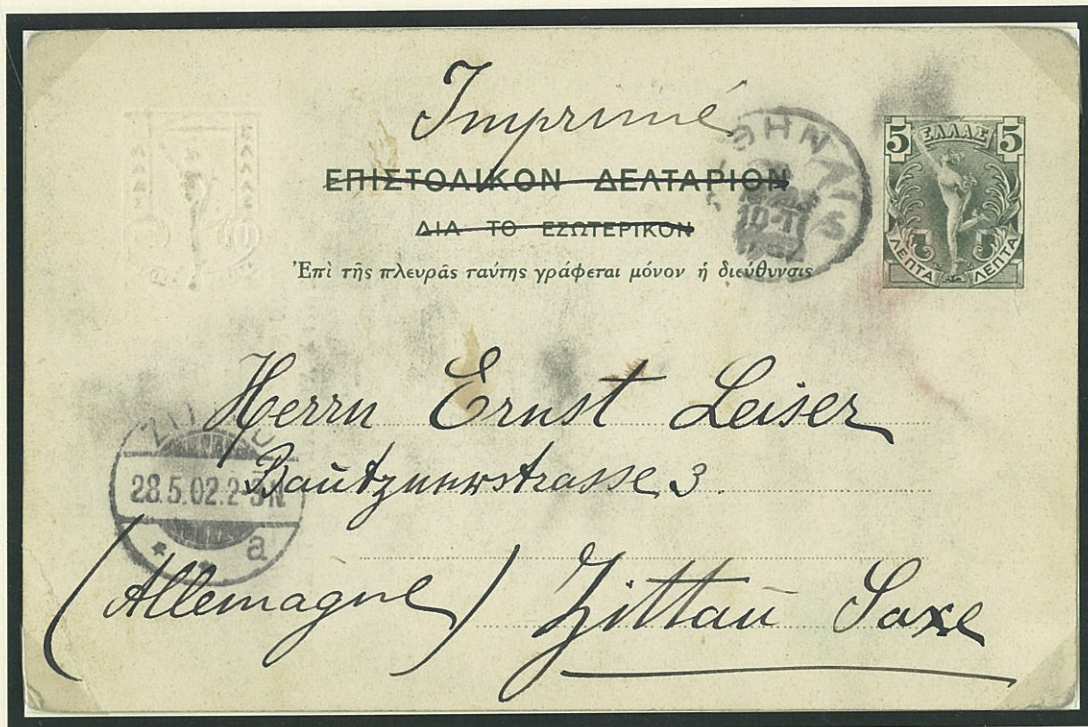 Imprimé
ΕΠΙΣΤΟΛΙΚΟΝ ΔΕΛΤΑΡΙΟΝ
ΔΙΑ ΤΟ ΕΣΩΤΕΡΙΚΟΝ
Ἐπὶ τῆς πλευρᾶς ταύτης γράφεται μόνον ἡ διεύθυνσις
5 ΕΛΛΑΣ 5
5 5
ΛΕΠΤΑ ΛΕΠΤΑ
ΑΘΗΝΑΙ
Herrn Ernst Leiser
Bautznerstrasse 3.
28.5.02.2-3N
a
(Allemagne) Zittau Saxe